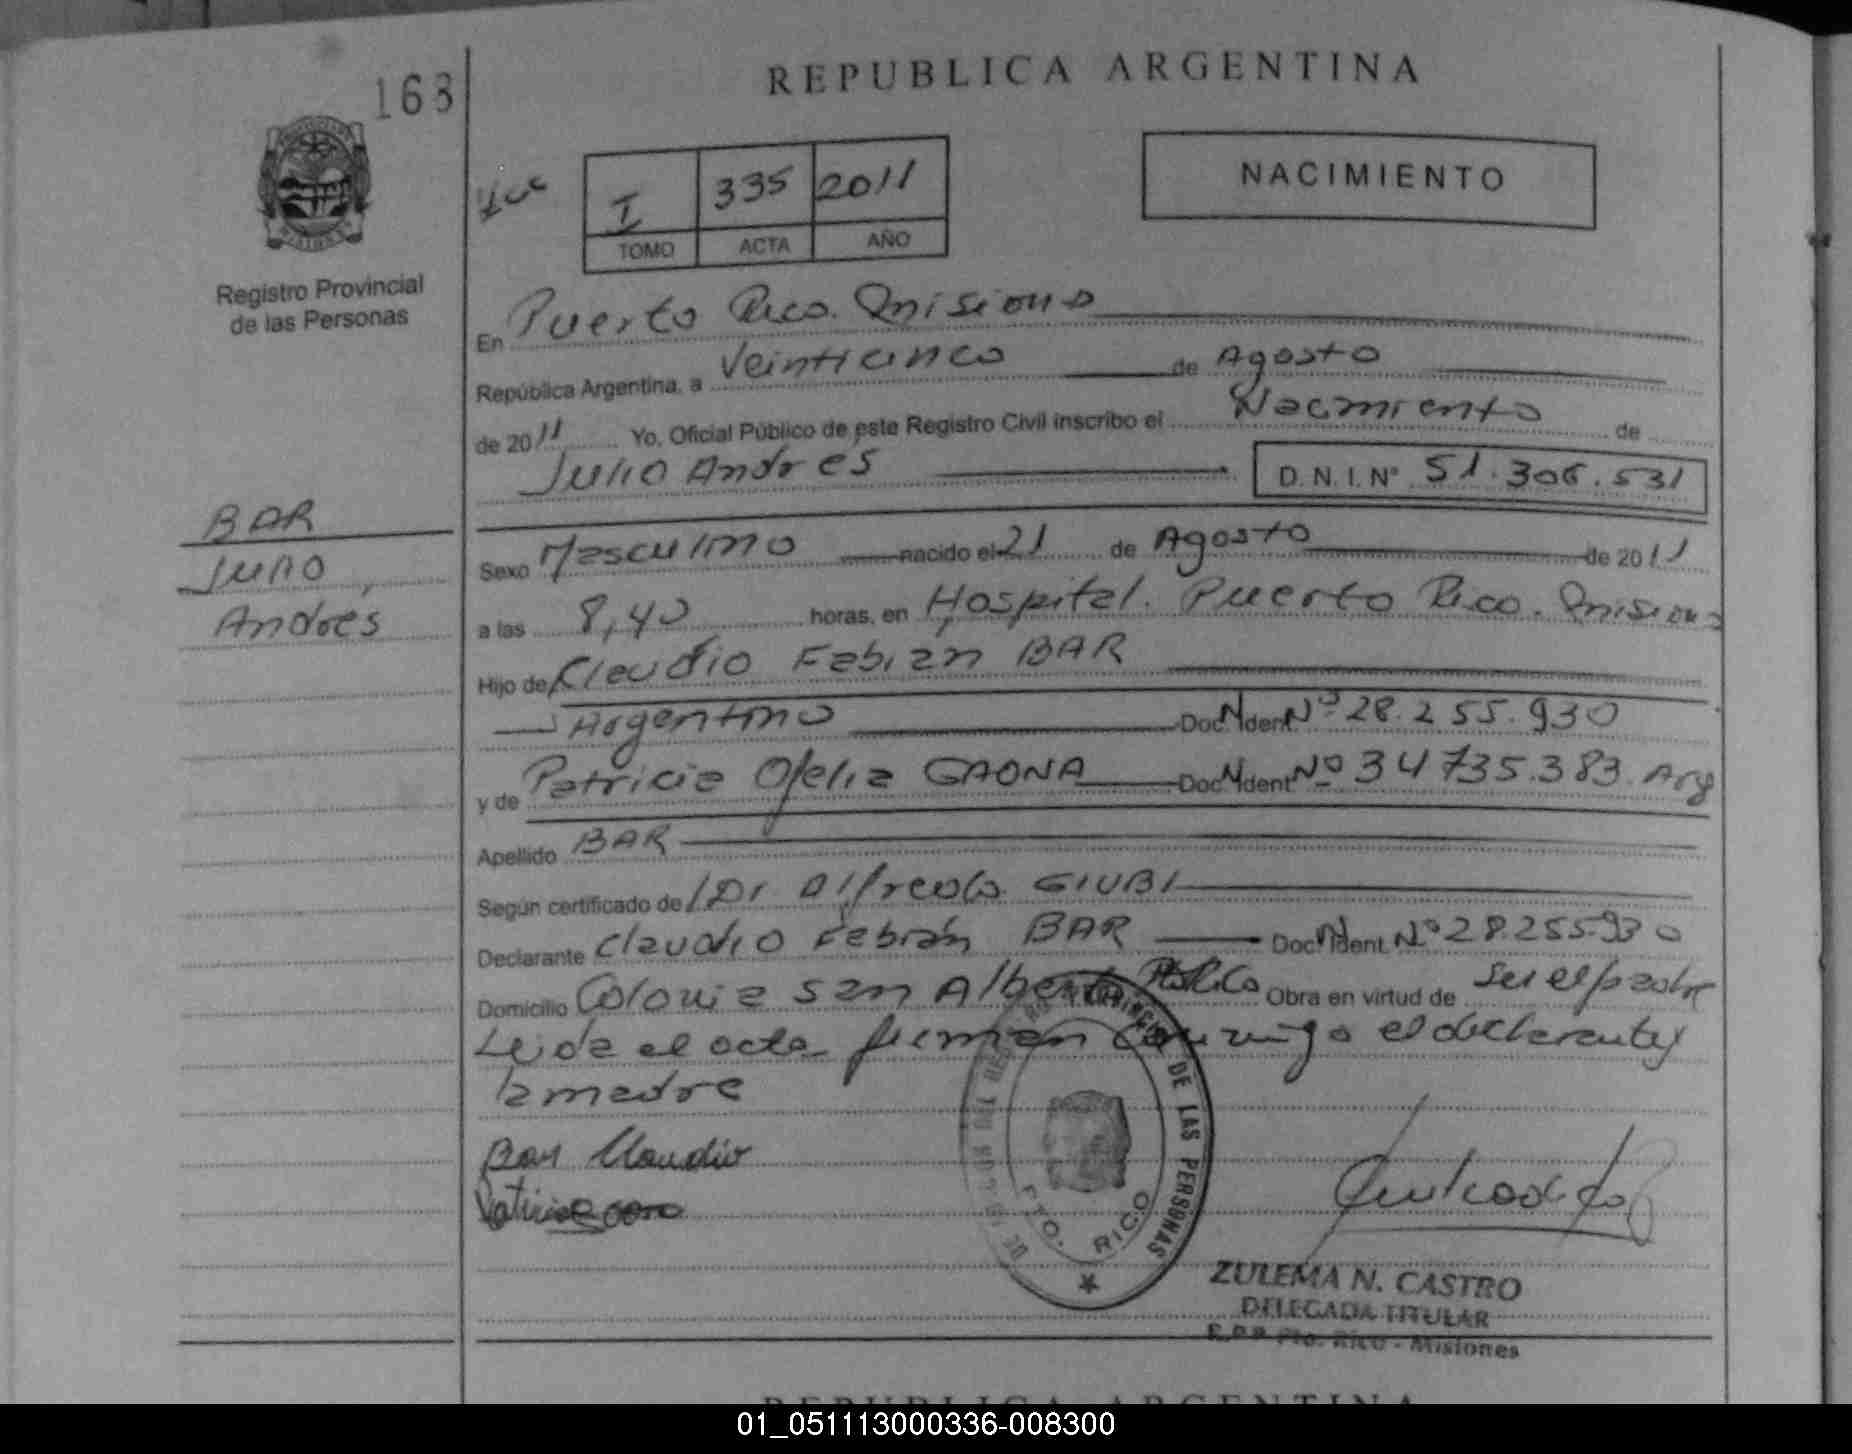 168
REPUBLICA ARGENTINA
NACIMIENTO
I 335 2011
TOMO ACTA AÑO
Registro Provincial
de las Personas
En Puerto Rico. Misiones
República Argentina, a Veinticinco de Agosto
de 2011 Yo, Oficial Público de este Registro Civil inscribo el Nacimiento de
Julio Andres D.N.I.Nº 51.306.531
BAR
Julio
Andres
Sexo Masculino nacido el 21 de Agosto de 2011
a las 8,40 horas, en Hospital. Puerto Rico. Misiones
Hijo de Claudio Fabián BAR
Argentino Doc. Ident. Nº 28.255.930
y de Patricia Ofelia GAONA Doc. Ident. Nº 34735.383. Arg
Apellido BAR
Según certificado de Dr Alfredo GIUBI
Declarante Claudio Fabián BAR Doc. Ident. Nº 28.255.930
Domicilio Colonia San Alberto Pto Rico Obra en virtud de ser el padre
Leida el acta firman conmigo el declarante y
la madre
Bar Claudio
DE LAS PERSONAS
PTO. RICO
ZULEMA N. CASTRO
DELEGADA TITULAR
R.P.P. Pto. Rico - Misiones
REPUBLICA ARGENTINA
01_051113000336-008300